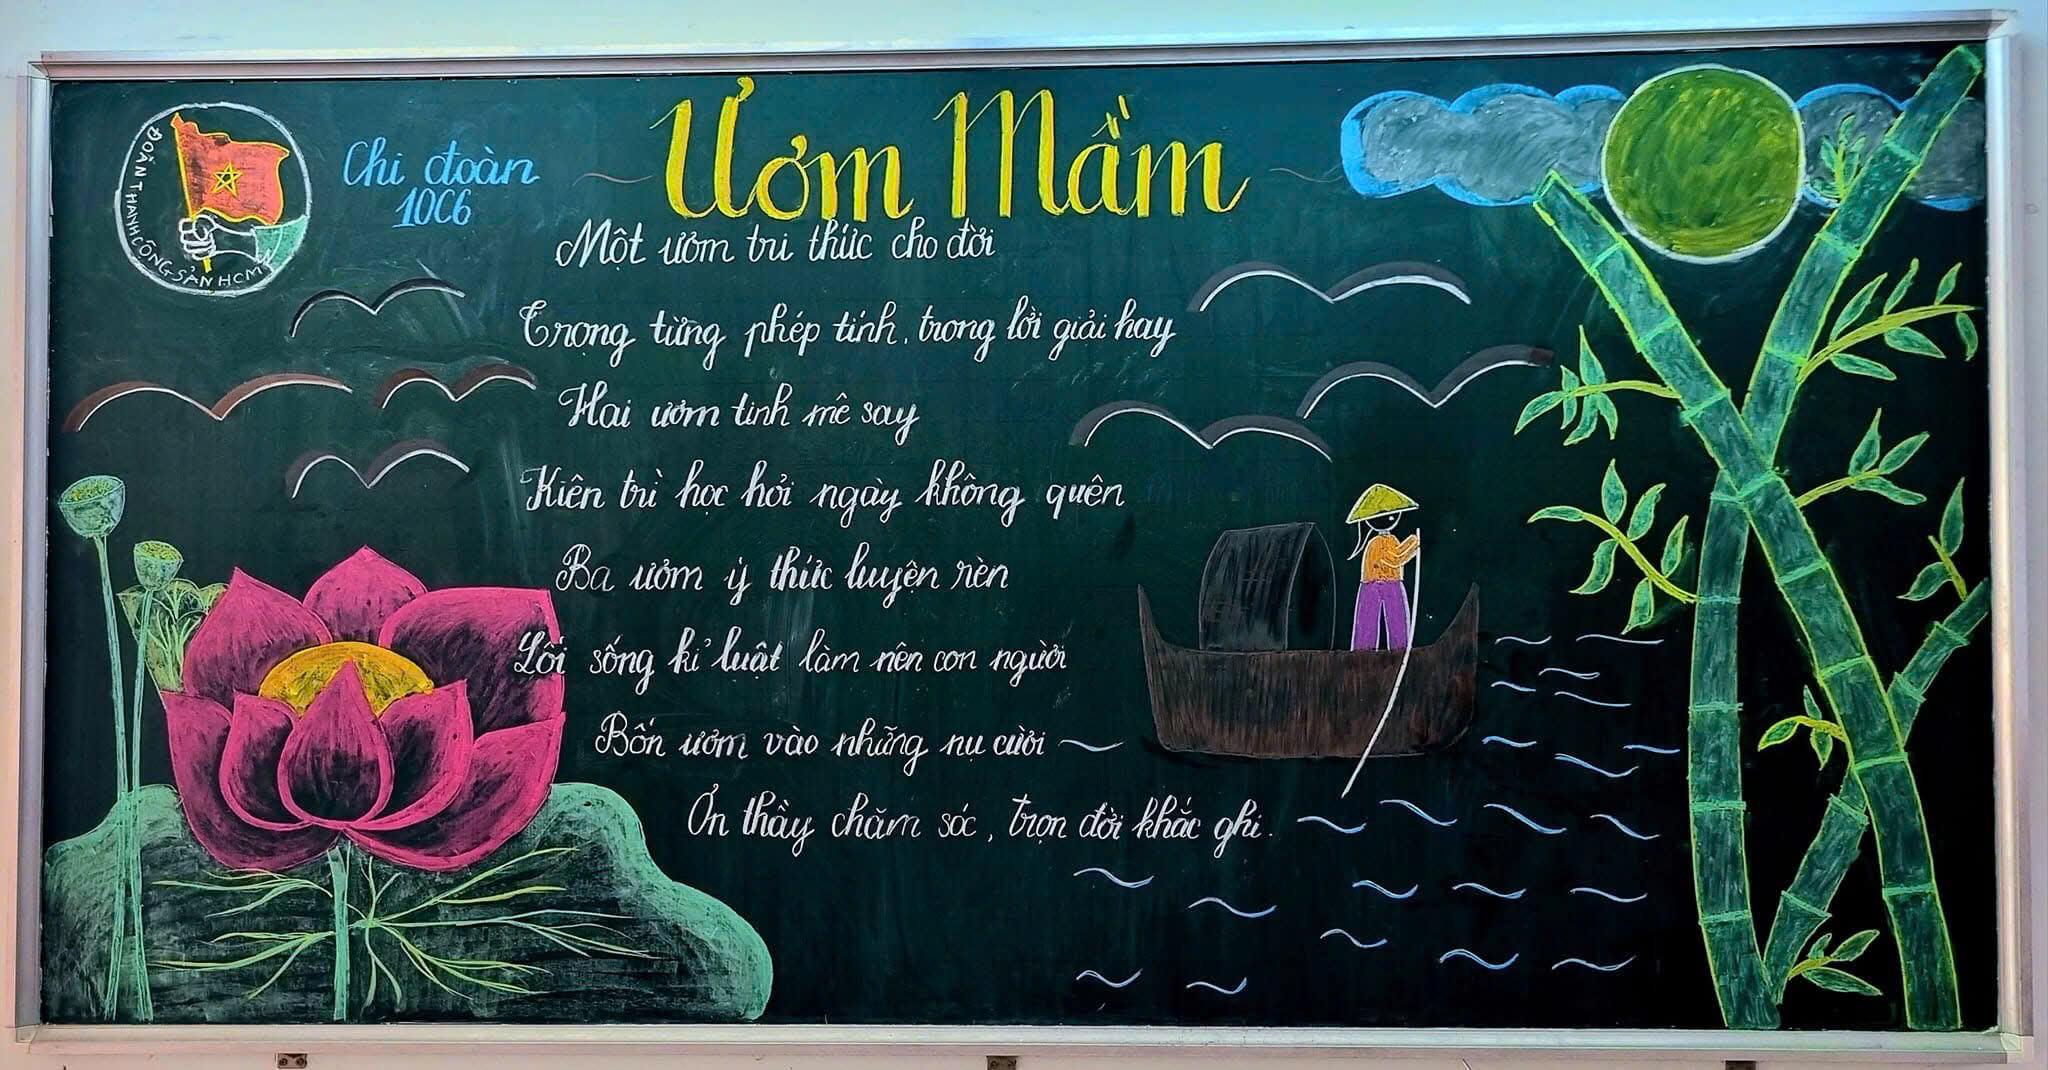 ĐOÀN THANH CÔNG SẢN HCM
Chi đoàn
10C6
Ươm Mầm
Một ươm tri thức cho đời
Trong từng phép tính, trong lời giải hay
Hai ươm tinh mê say
Kiên trì học hỏi ngày không quên
Ba ươm ý thức luyện rèn
Lối sống kỉ luật làm nên con người
Bốn ươm vào những nụ cười
Ơn thầy chăm sóc, trọn đời khắc ghi.